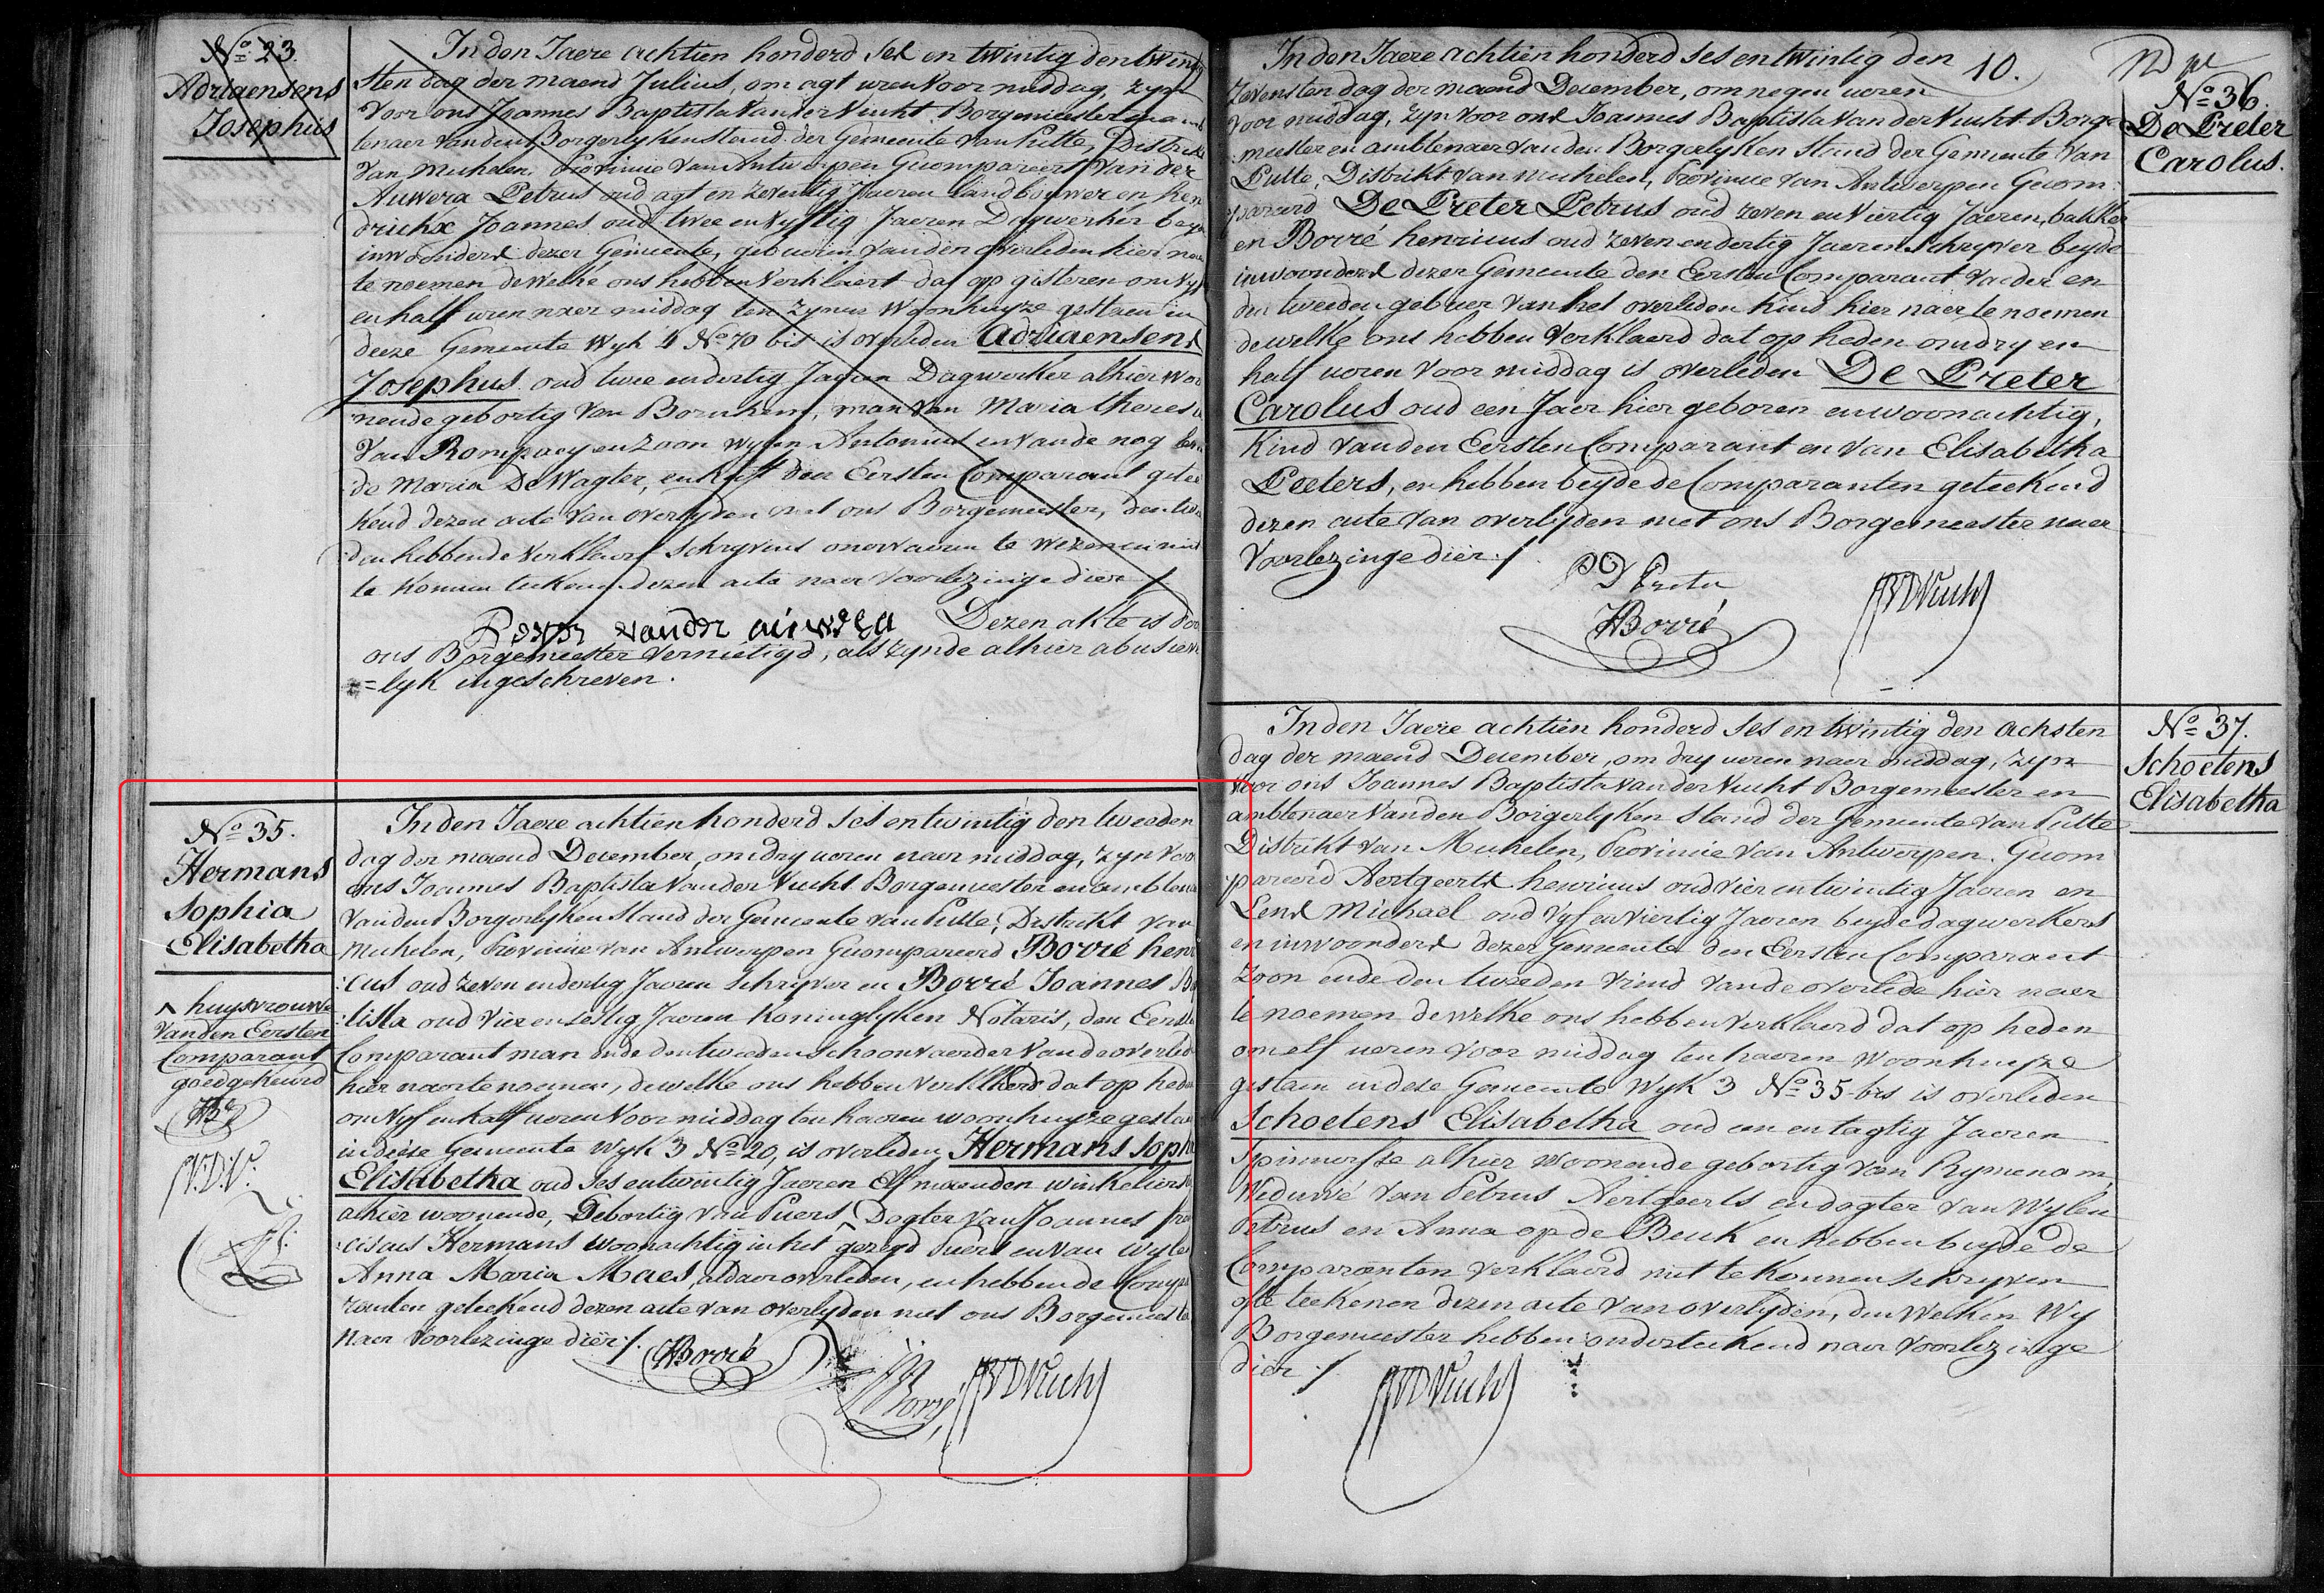 No 23.
Adriaensens
Josephus
In den Jaere achtien honderd ses en twintig den twin
sten dag der maend Julius, om agt uren voor middag, zyn
voor ons Joannes Baptista Van der Vucht Borgemeester en am
tenaer van den Borgerlyken stand der Gemeente van Putte, Distrikt
van Mechelen, Provincie van Antwerpen Gecompareert Van der
Auwera Petrus oud agt en zeventig Jaeren landbouwer en Hen
drickx Joannes oud twee en vyftig Jaeren Dagwerker beyde
inwoonders dezer Gemeente, gebueren van den overleden hier naer
te noemen dewelke ons hebben verklaert dat op gisteren om vyf
en half uren naer middag ten zynen woonhuyze gestaen in
deeze Gemeente Wyk 4 No 70 bis is overleden Adriaensens
Josephus oud twee en dertig Jaeren Dagwerker alhier woo
nende gebortig van Bornhem, man van Maria theresia
Van Rompaey en zoon wylen Antonius en van de nog leven
de Maria De Wagter, en heeft den Eersten Comparant getee
kend dezen acte van overlyden met ons Borgemeester, den twee
den hebbende verklaert schryvens onervaeren te wezen en niet
te konnen teekenen dezen acte naer voorlezinge dier ./.
Peeter vander auwera Dezen akte is door
ons Borgemeester vernietigd, als zynde alhier abusieve
=lyk ingeschreven.
No 35.
Hermans
Sophia
Elisabetha
^ huysvrouwe
van den Eersten
Comparant
goedgekeurd
HB
V.D.V.
In den Jaere achtien honderd ses en twintig den tweeden
dag der maend December, om dry ueren naer middag, zyn voor
ons Joannes Baptista Van der Vucht Borgemeester en amblena
van den Borgerlyken Stand der Gemeente van Putte, Distrikt van
Mechelen, Provincie van Antwerpen Gecompareerd Borré henri
:cus oud zeven en dertig Jaeren schryver en Borré Joannes Bap
:tista oud vier en sestig Jaeren Koninglyken Notaris, den Eersten
Comparant man ende den tweeden schoonvaerder van de overlede
hier naer te noemen, dewelke ons hebben verklaerd dat op heden
om vyf en half ueren voor middag ten haeren woonhuyze gestaen
in dese Gemeente Wyk 3 No 20, is overleden Hermans Soph
Elisabetha oud ses en twintig Jaeren elf maenden winkeliers
alhier woonende, Gebortig van Puers ^ Dogter van Joannes fran
:ciscus Hermans woonachtig in het gezegd Puers en van wylen
Anna Maria Maes, aldaer overleden, en hebben de Compa
ranten geteekend dezen acte van overlyden met ons Borgemeester
naer voorlezinge dier ./.
HBorré
Borré
JBVDVucht
10.
In den Jaere achtien honderd ses en twintig den
zevensten dag der maend December, om negen ueren
voor middag, zyn voor ons Joannes Baptista Van der Vucht Borge
:meester en amblenaer van den Borgerlyken Stand der Gemeente van
Putte, Distrikt van Mechelen, Provincie van Antwerpen Gecom
:pareerd De Preter Petrus oud zeven en viertig Jaeren, bakker
en Borré henricus oud zeven en dertig Jaeren Schryver beyde
inwoonders dezer Gemeente den Eersten Comparant vaeder en
den tweeden gebuer van het overleden Kind hier naer te noemen
dewelke ons hebben verklaerd dat op heden om dry en
half ueren voor middag is overleden De Preter
Carolus oud een Jaer hier geboren en woonachtig,
Kind van den Eersten Comparant en van Elisabetha
Peeters, en hebben beyde de Comparanten geteekend
dezen acte van overlyden met ons Borgemeester naer
voorlezinge dier ./.
PD Preter
HBorré
JBVDVucht
No 36.
De Preter
Carolus.
In den Jaere achtien honderd ses en twintig den achsten
dag der maend December, om dry ueren naer middag, zyn
voor ons Joannes Baptista Van der Vucht Borgemeester en
amblenaer van den Borgerlyken Stand der Gemeente van Putte
Distrikt van Mechelen, Provincie van Antwerpen. Gecom
:pareerd Aertgeerts henricus oud vier en twintig Jaeren en
Lens Michaël oud vyf en viertig Jaeren beyde dagwerkers
en inwoonders dezer Gemeente den Eersten Comparant
zoon ende den tweeden vrind van de overlede hier naer
te noemen dewelke ons hebben verklaerd dat op heden
om elf ueren voor middag ten haeren woonhuyze
gestaen in dese Gemeente Wyk 3 No 35 bis is overleden
Schoetens Elisabetha oud een en tagtig Jaeren
Spinnersse alhier woonende gebortig van Rymenam,
Weduwé van Petrus Aertgeerts en dogter van Wylen
Petrus en Anna op de Beeck en hebben beyde de
Comparanten verklaerd niet te konnen schryven
ofte teekenen dezen acte van overlyden, den welken Wy
Borgemeester hebben onderteekend naer voorlezinge
dier ./.
JBVDVucht
No 37.
Schoetens
Elisabetha